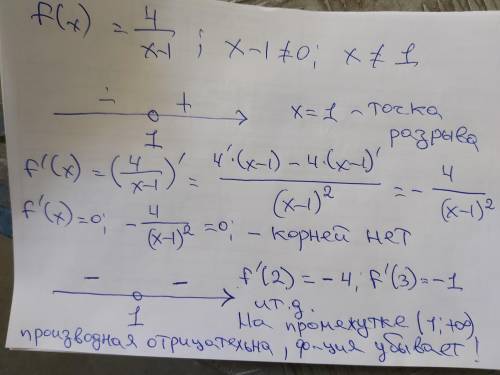 f(x) = 4/(x-1) ; x-1≠0; x≠1
- +
1
x=1 - точка
разрыва
f'(x) = (4/(x-1))' = (4'·(x-1) - 4·(x-1)')/(x-1)² = - 4/(x-1)²
f'(x)=0; - 4/(x-1)² =0; - корней нет
- -
1
f'(2) = -4; f'(3) = -1
и т.д.
На промежутке (1; +∞)
производная отрицательна, ф-ция убывает!